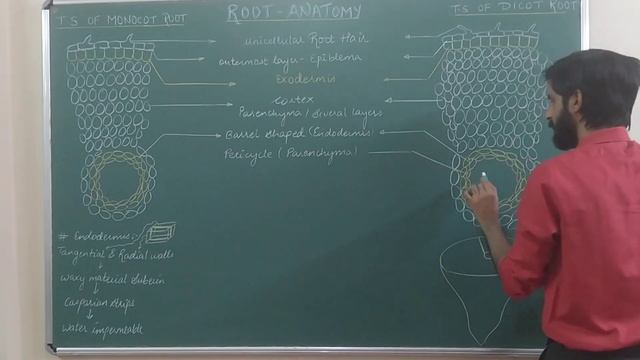 T.S OF MONOCOT ROOT
ROOT-ANATOMY
T.S OF DICOT ROOT
unicellular Root Hair
outermost layer - Epiblema
Exodermis
Cortex
Parenchyma / Several layers
Barrel shaped (Endodermis)
Pericycle (Parenchyma)
# Endodermis:-
Tangential & Radial walls
waxy material Suberin
Casparian strips
water impermeable